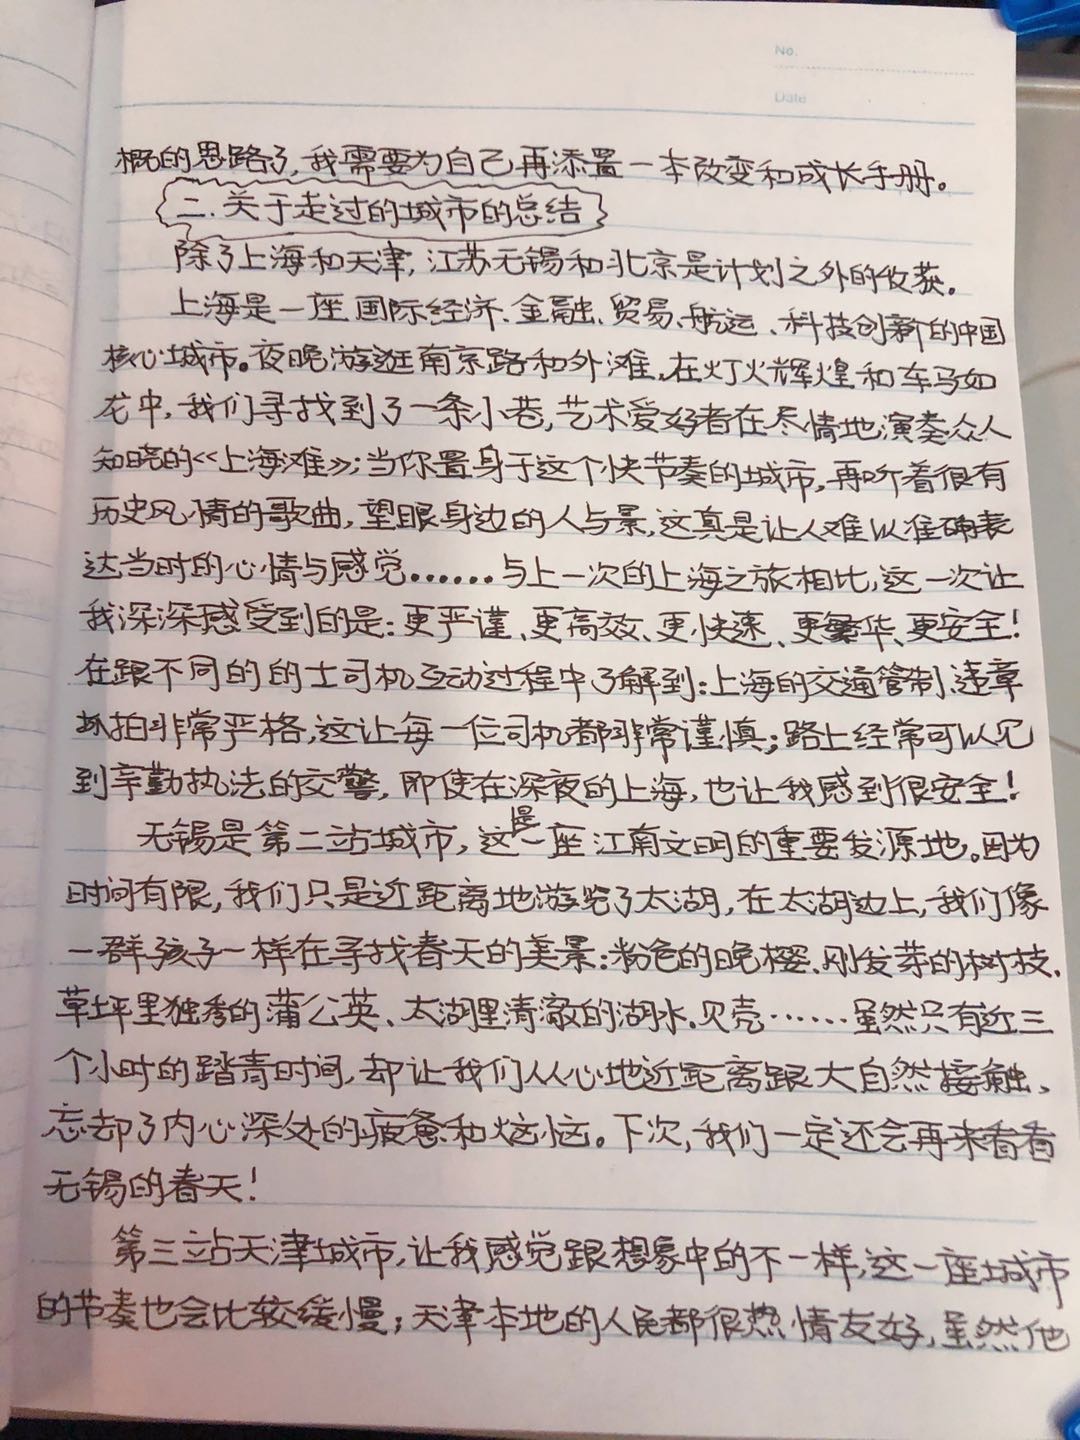 No.
Date
概的思路了，我需要为自己再添置一本改变和成长手册。
二.关于走过的城市的总结
除了上海和天津，江苏无锡和北京是计划之外的收获。
上海是一座国际经济、金融、贸易、航运、科技创新的中国
核心城市。夜晚游逛南京路和外滩，在灯火辉煌和车马如
龙中，我们寻找到了一条小巷，艺术爱好者在尽情地演奏众人
知晓的《上海滩》；当你置身于这个快节奏的城市，再听着很有
历史风情的歌曲，望眼身边的人与景，这真是让人难以准确表
达当时的心情与感觉……与上一次的上海之旅相比，这一次让
我深深感受到的是：更严谨、更高效、更快速、更繁华、更安全！
在跟不同的的士司机互动过程中了解到：上海的交通管制、违章
抓拍非常严格，这让每一位司机都非常谨慎；路上经常可以见
到辛勤执法的交警，即使在深夜的上海，也让我感到很安全！
无锡是第二站城市，这是一座江南文明的重要发源地。因为
时间有限，我们只是近距离地游览了太湖，在太湖边上，我们像
一群孩子一样在寻找春天的美景：粉色的晚樱、刚发芽的树枝、
草坪里独秀的蒲公英、太湖里清澈的湖水、贝壳……虽然只有近三
个小时的踏青时间，却让我们从心地近距离跟大自然接触、
忘却了内心深处的疲惫和烦恼。下次，我们一定还会再来看看
无锡的春天！
第三站天津城市，让我感觉跟想象中的不一样，这一座城市
的节奏也会比较缓慢；天津本地的人民都很热情友好，虽然他